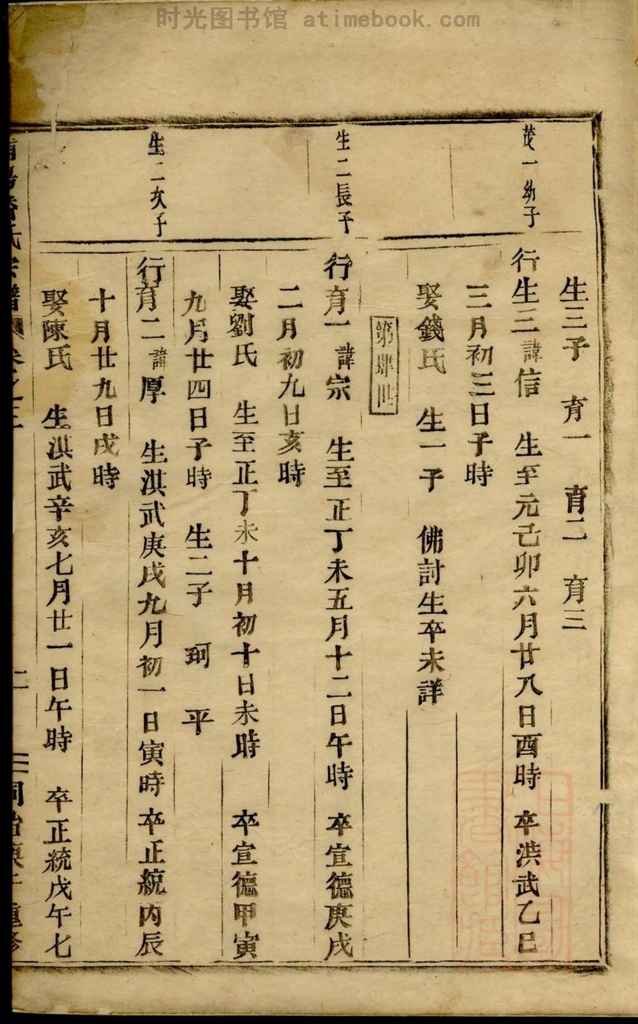 时光图书馆 atimebook.com
生三子 育一 育二 育三
茂一幼子
行生三諱信 生至元己卯六月廿八日酉時 卒洪武乙巳
三月初三日子時
娶錢氏 生一子 佛討生卒未詳
第肆世
生二長子
行育一諱宗 生至正丁未五月十二日午時 卒宣德庚戌
二月初九日亥時
娶劉氏 生至正丁未十月初十日未時 卒宣德甲寅
九月廿四日子時 生二子 珂 平
生二次子
行育二諱厚 生淇武庚戌九月初一日寅時 卒正統丙辰
十月廿九日戌時
娶陳氏 生淇武辛亥七月廿一日午時 卒正統戊午七
氏宗譜 卷之二 二 同治庚午重修